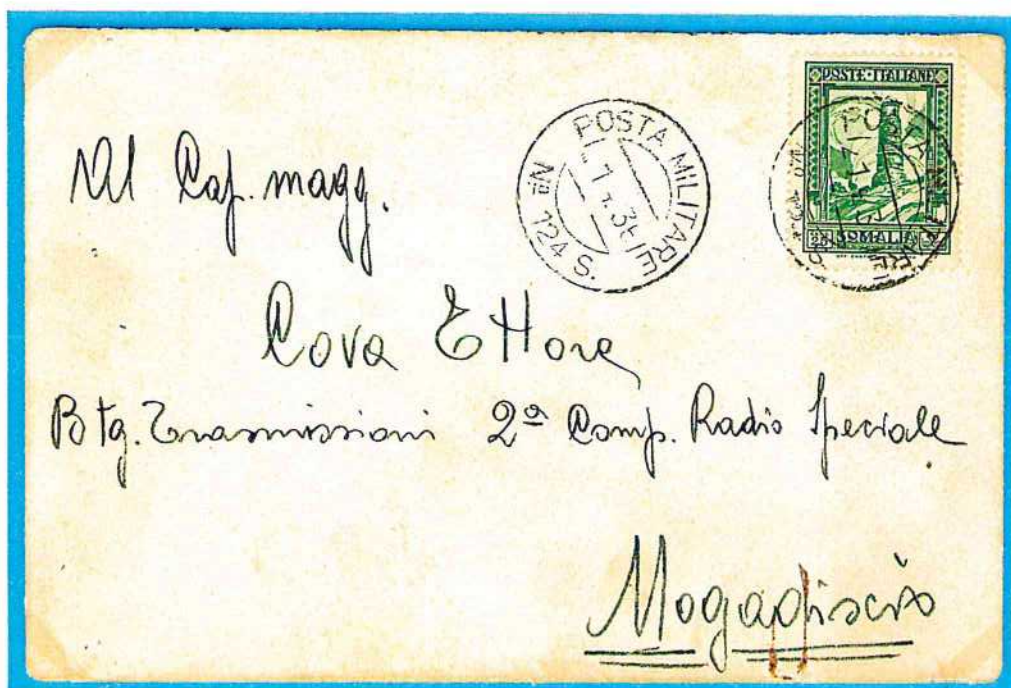 POSTE·ITALIANE
SOMALIA
POSTA MILITARE
Nº 124 S.
Al Cap. magg.
Cova Ettore
Btg. Trasmissioni 2ª Comp. Radio Speciale
Mogadiscio